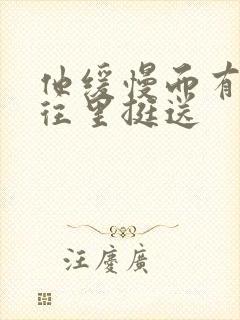 他缓慢而有
往里挺送
汪慶廣